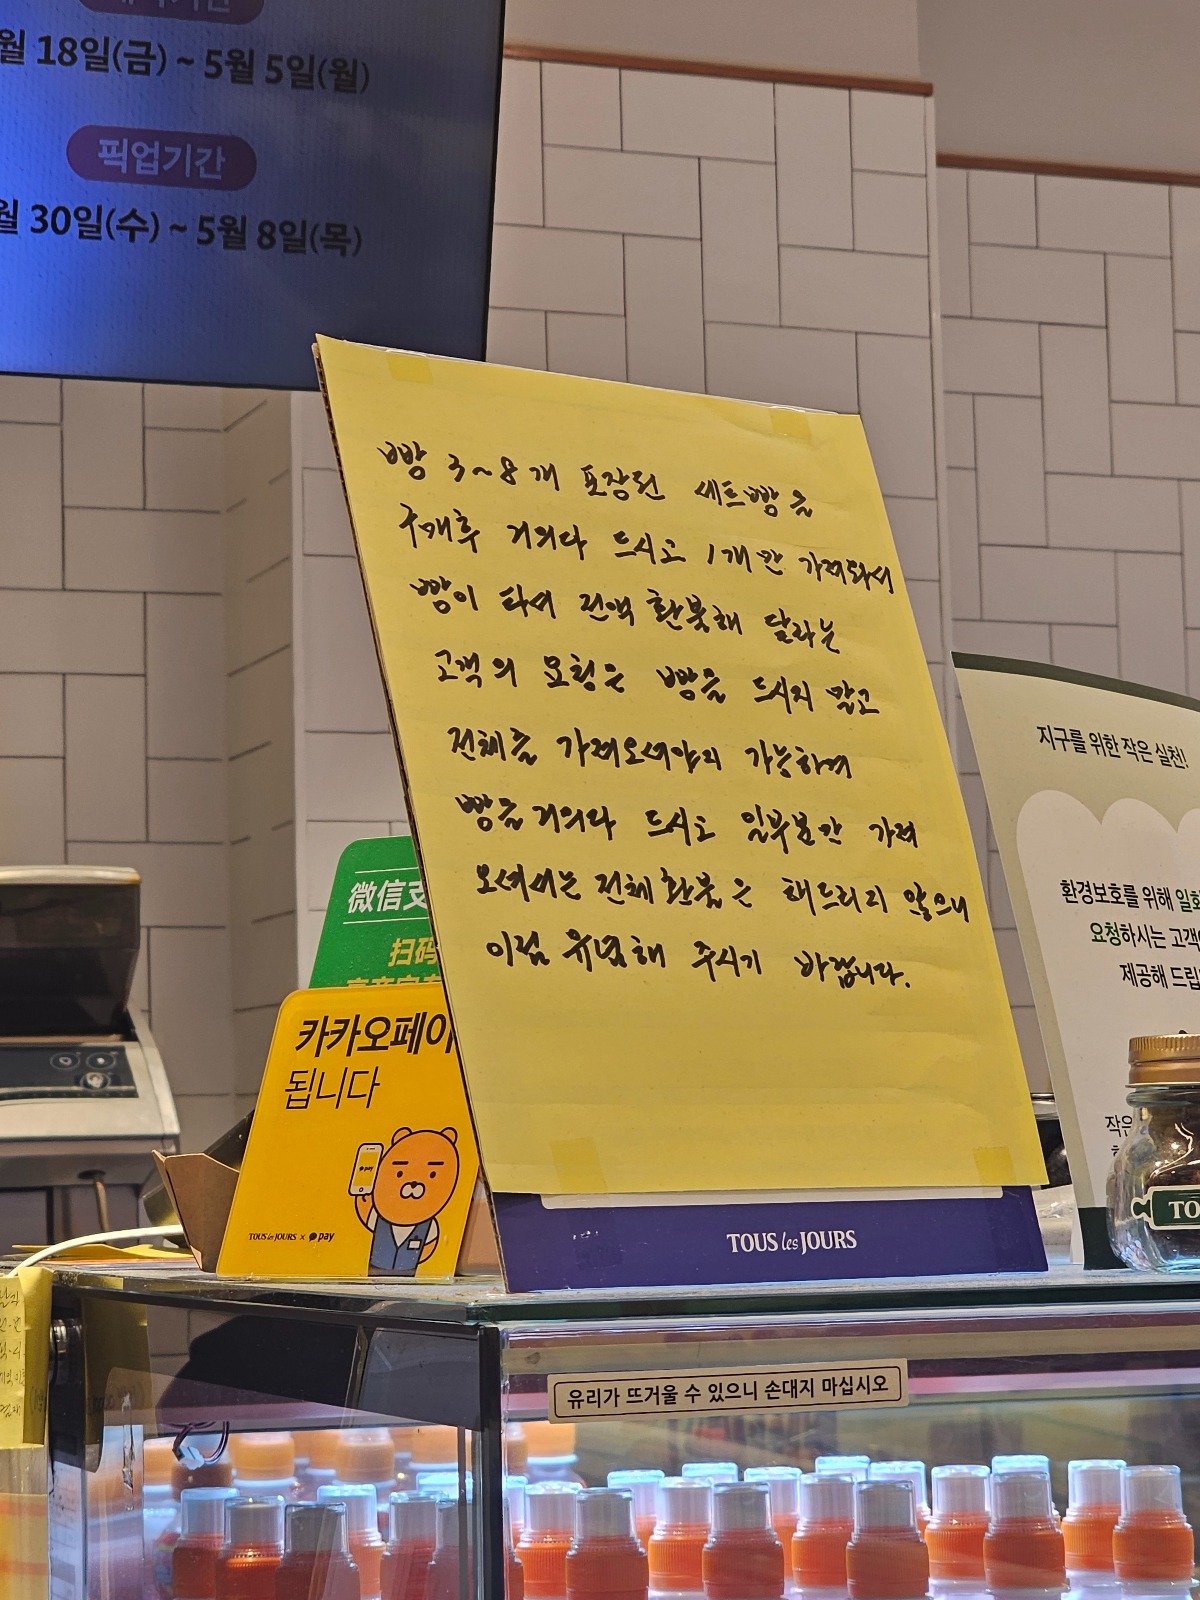 월 18일(금) ~ 5월 5일(월)
픽업기간
월 30일(수) ~ 5월 8일(목)
빵 3~8개 포장된 세트빵을
구매후 거의다 드시고 1개만 가져와서
빵이 타서 전액 환불해 달라는
고객의 요청은 빵을 드시지 말고
전체를 가져오셔야지 가능하며
빵을 거의다 드시고 일부분만 가져
오셔서는 전체환불은 해드리지 않으니
이점 유념해 주시기 바랍니다.
TOUS les JOURS
微信支
扫码
카카오페이
됩니다
pay
TOUS les JOURS × pay
지구를 위한 작은 실천!
환경보호를 위해 일회
요청하시는 고객
제공해 드립
작은
TO
유리가 뜨거울 수 있으니 손대지 마십시오